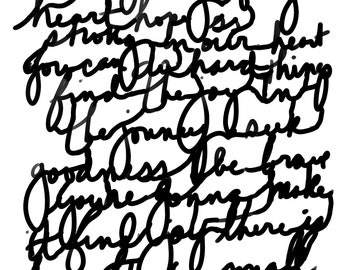 heart hope is
strong in our heart
you can do hard things
find the joy in
the journey seek
goodness be brave
you're gonna make
it find joy there is